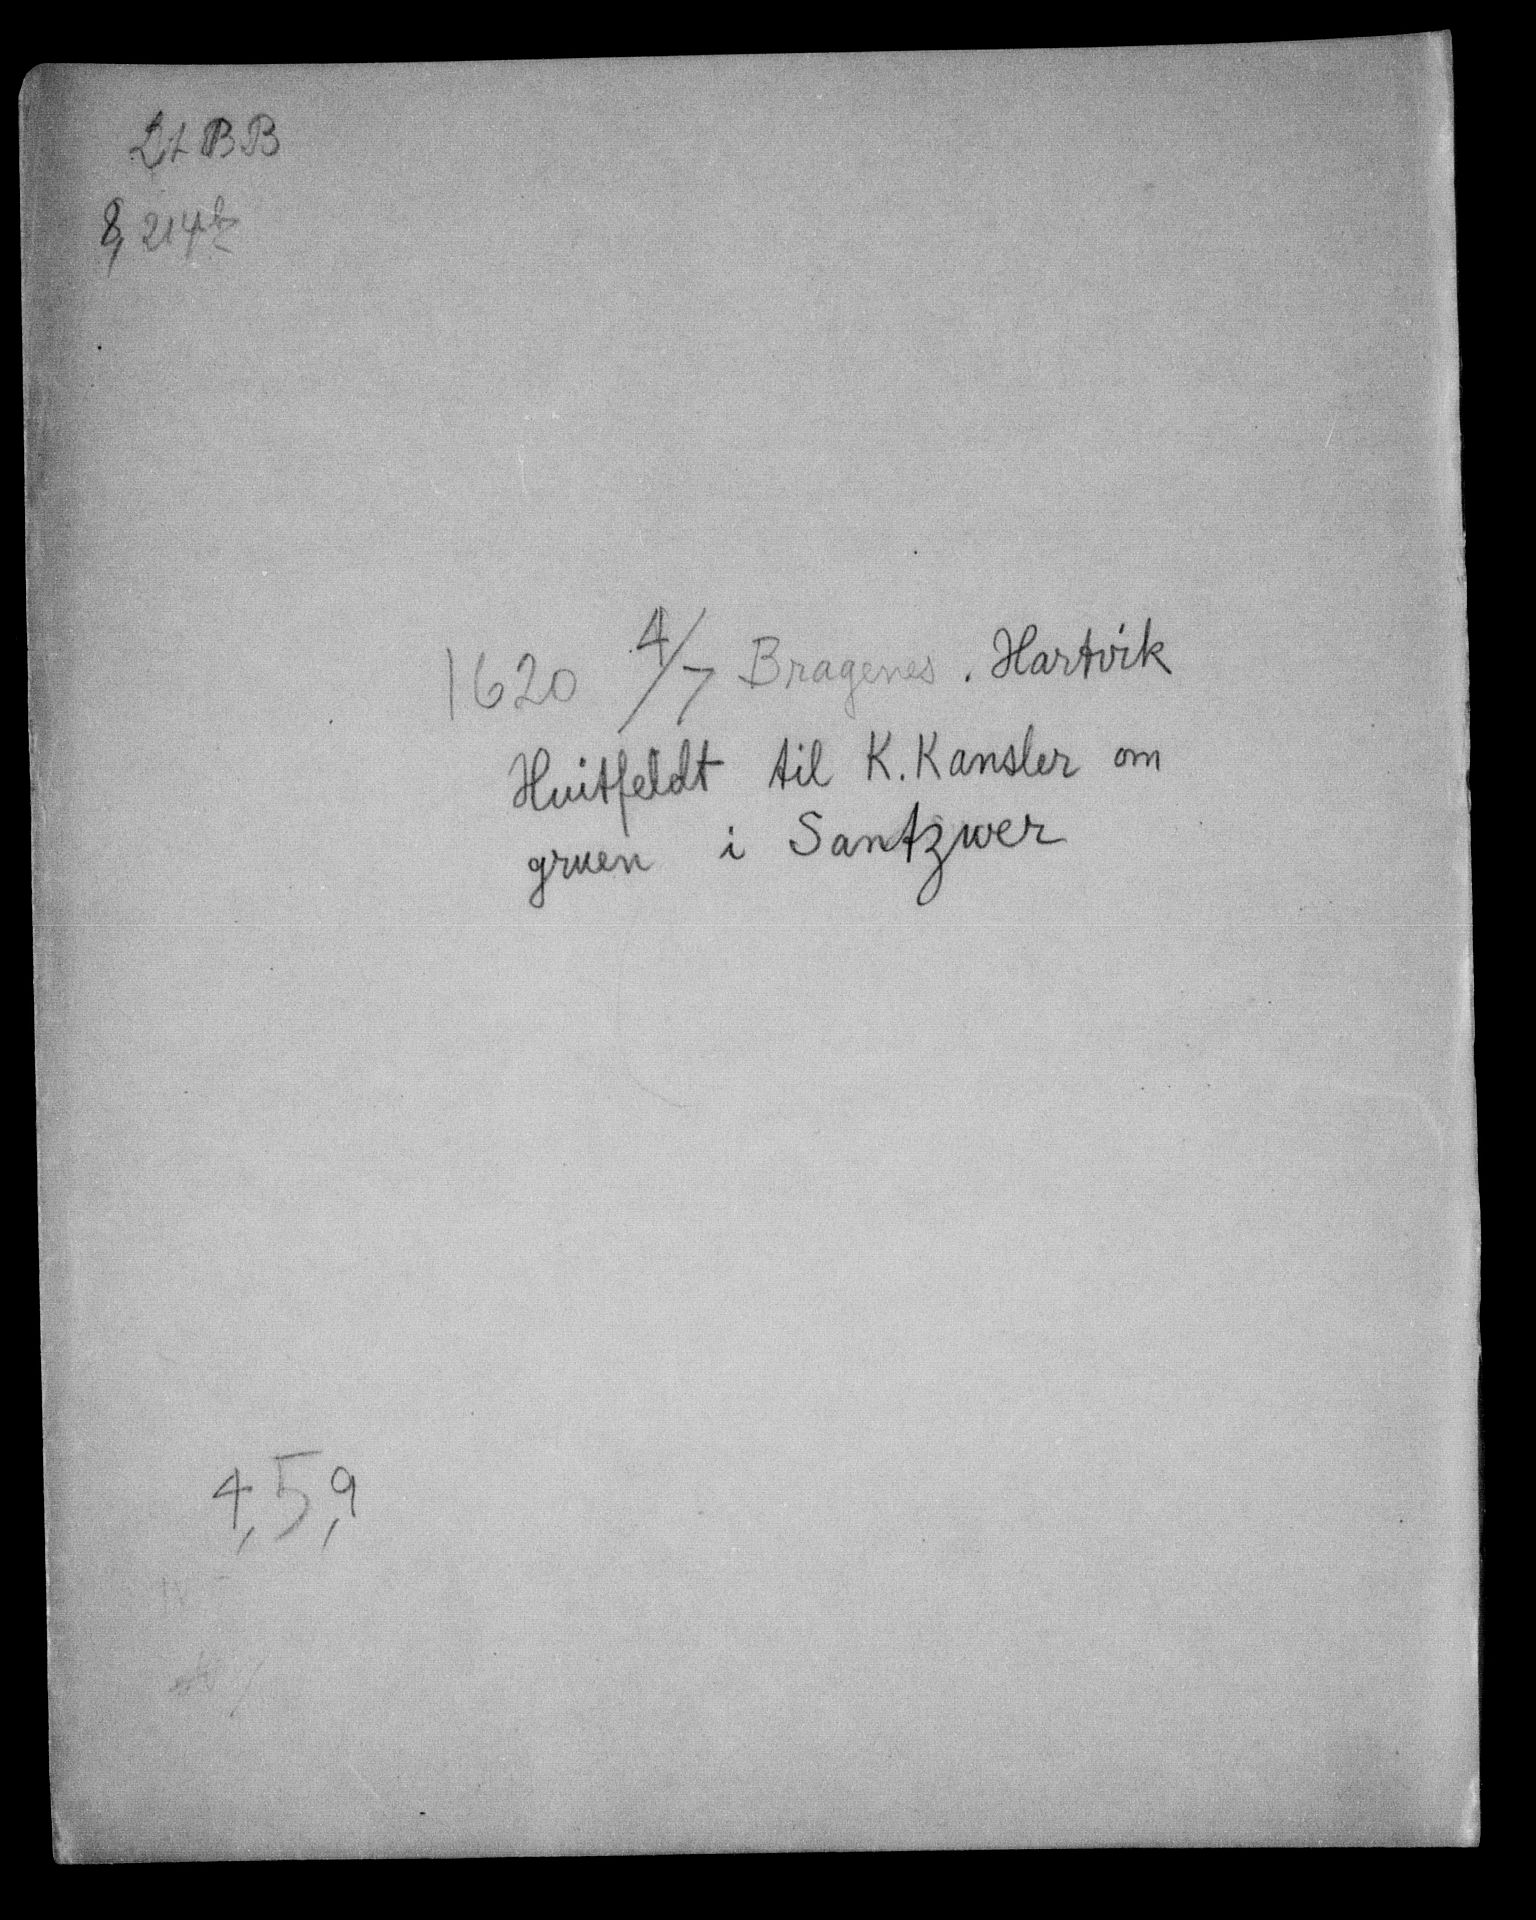 Lt BB
8, 214b
1620 4/7 Bragenes. Hartvik
Huitfeldt til K. Kansler om
gruen i Santzwer
4, 5, 9